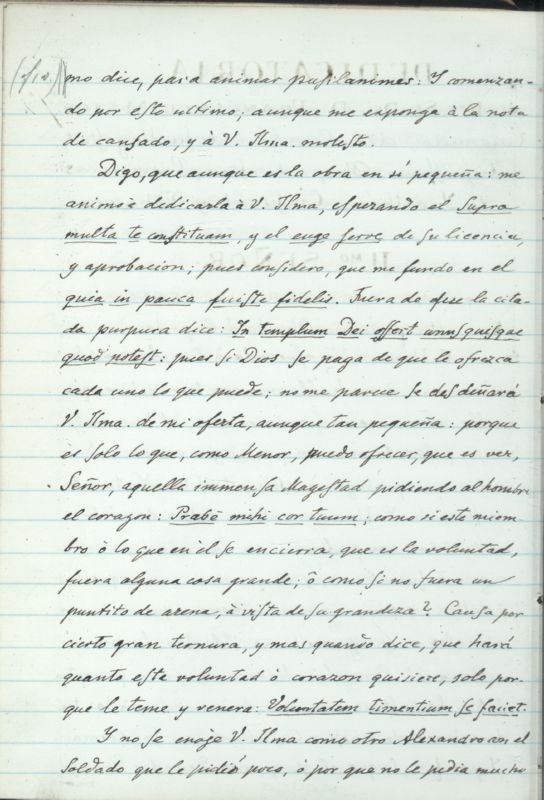 mo dice, para animar pusilanimes: Y comenzan-
do por esto ultimo; aunque me exponga à la nota
de cansado, y à V. Ilma. molesto.
Digo, que aunque es la obra en sí pequeña: me
animo à dedicarla à V. Ilma, esperando el Supra
multa te constituam, y el euge serve de su licencia,
y aprobacion; pues considero, que me fundo en el
quia in pauca fuiste fidelis. Fuera de que la cita-
da purpura dice: In templum Dei offert unusquisque
quod potest: pues si Dios se paga de que le ofrezca
cada uno lo que puede; no me parece se desdeñará
V. Ilma. de mi oferta, aunque tan pequeña: porque
es solo lo que, como Menor, puedo ofrecer, que es ver,
Señor, aquella inmensa Magestad pidiendo al hombre
el corazon: Prabe mihi cor tuum; como si este miem-
bro ò lo que en èl se encierra, que es la voluntad,
fuera alguna cosa grande; ò como si no fuera un
puntito de arena, à vista de su grandeza? Causa por
cierto gran ternura, y mas quando dice, que hará
quanto esta voluntad ò corazon quisiere, solo por-
que le teme y venera: Voluntatem timentium se faciet.
Y no se enoje V. Ilma como otro Alexandro con el
Soldado que le pidió poco, ò por que no le pedia mucho